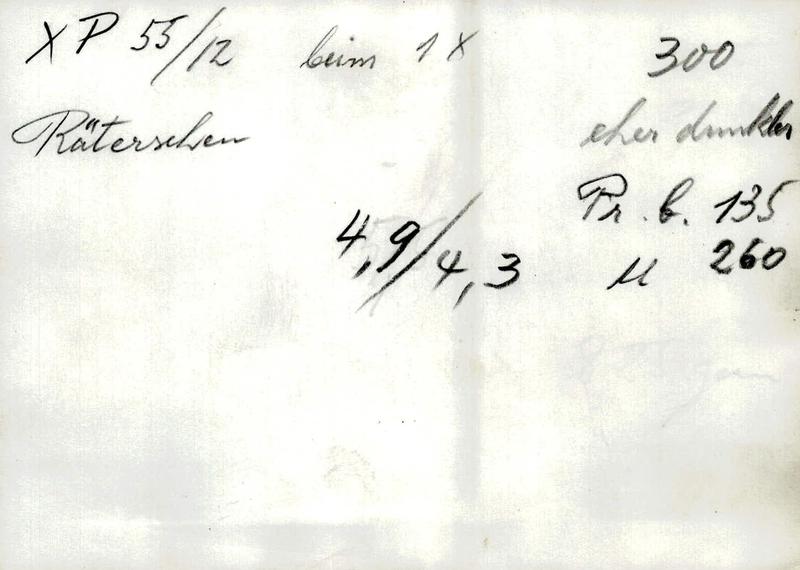 XP 55/12 beim 1X 300
Räterschen eher dunkler
Pr. b. 135
4,9/4,3 M 260